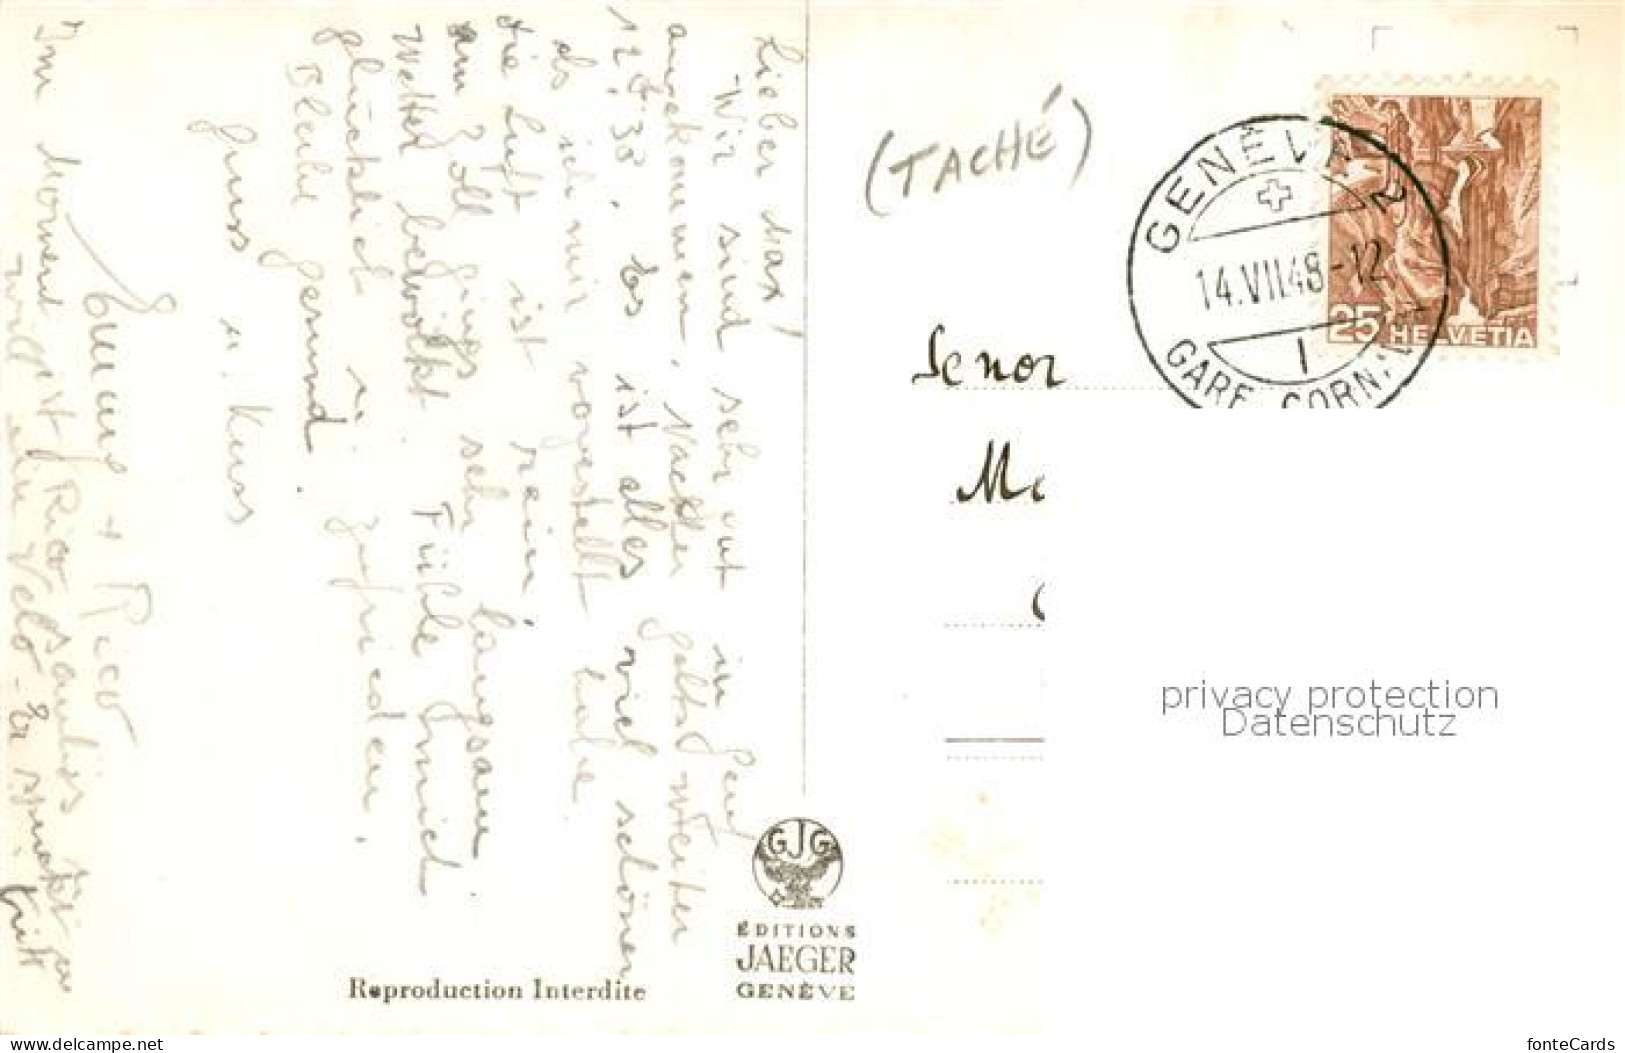 Lieber Max!
Wir sind sehr gut in Genf
angekommen. Nachher gehts weiter
12.38. Es ist alles viel schöner
als ich mir vorgestellt habe.
die Luft ist rein.
Am Zoll gings sehr langsam.
Wetter bewölkt. Fühle mich
glücklich u. zufrieden.
Bleibe gesund.
Gruss u. Kuss
Emmy + Rico
Im Moment ist Rico
will ein Velo - Er
(TACHÉ)
GENÈVE 2
14.VII.48-12
1
GARE CORN
25 HELVETIA
Senor
privacy protection
Datenschutz
GJG
ÉDITIONS
JAEGER
GENÈVE
Reproduction Interdite
www.delcampe.net
fonteCards